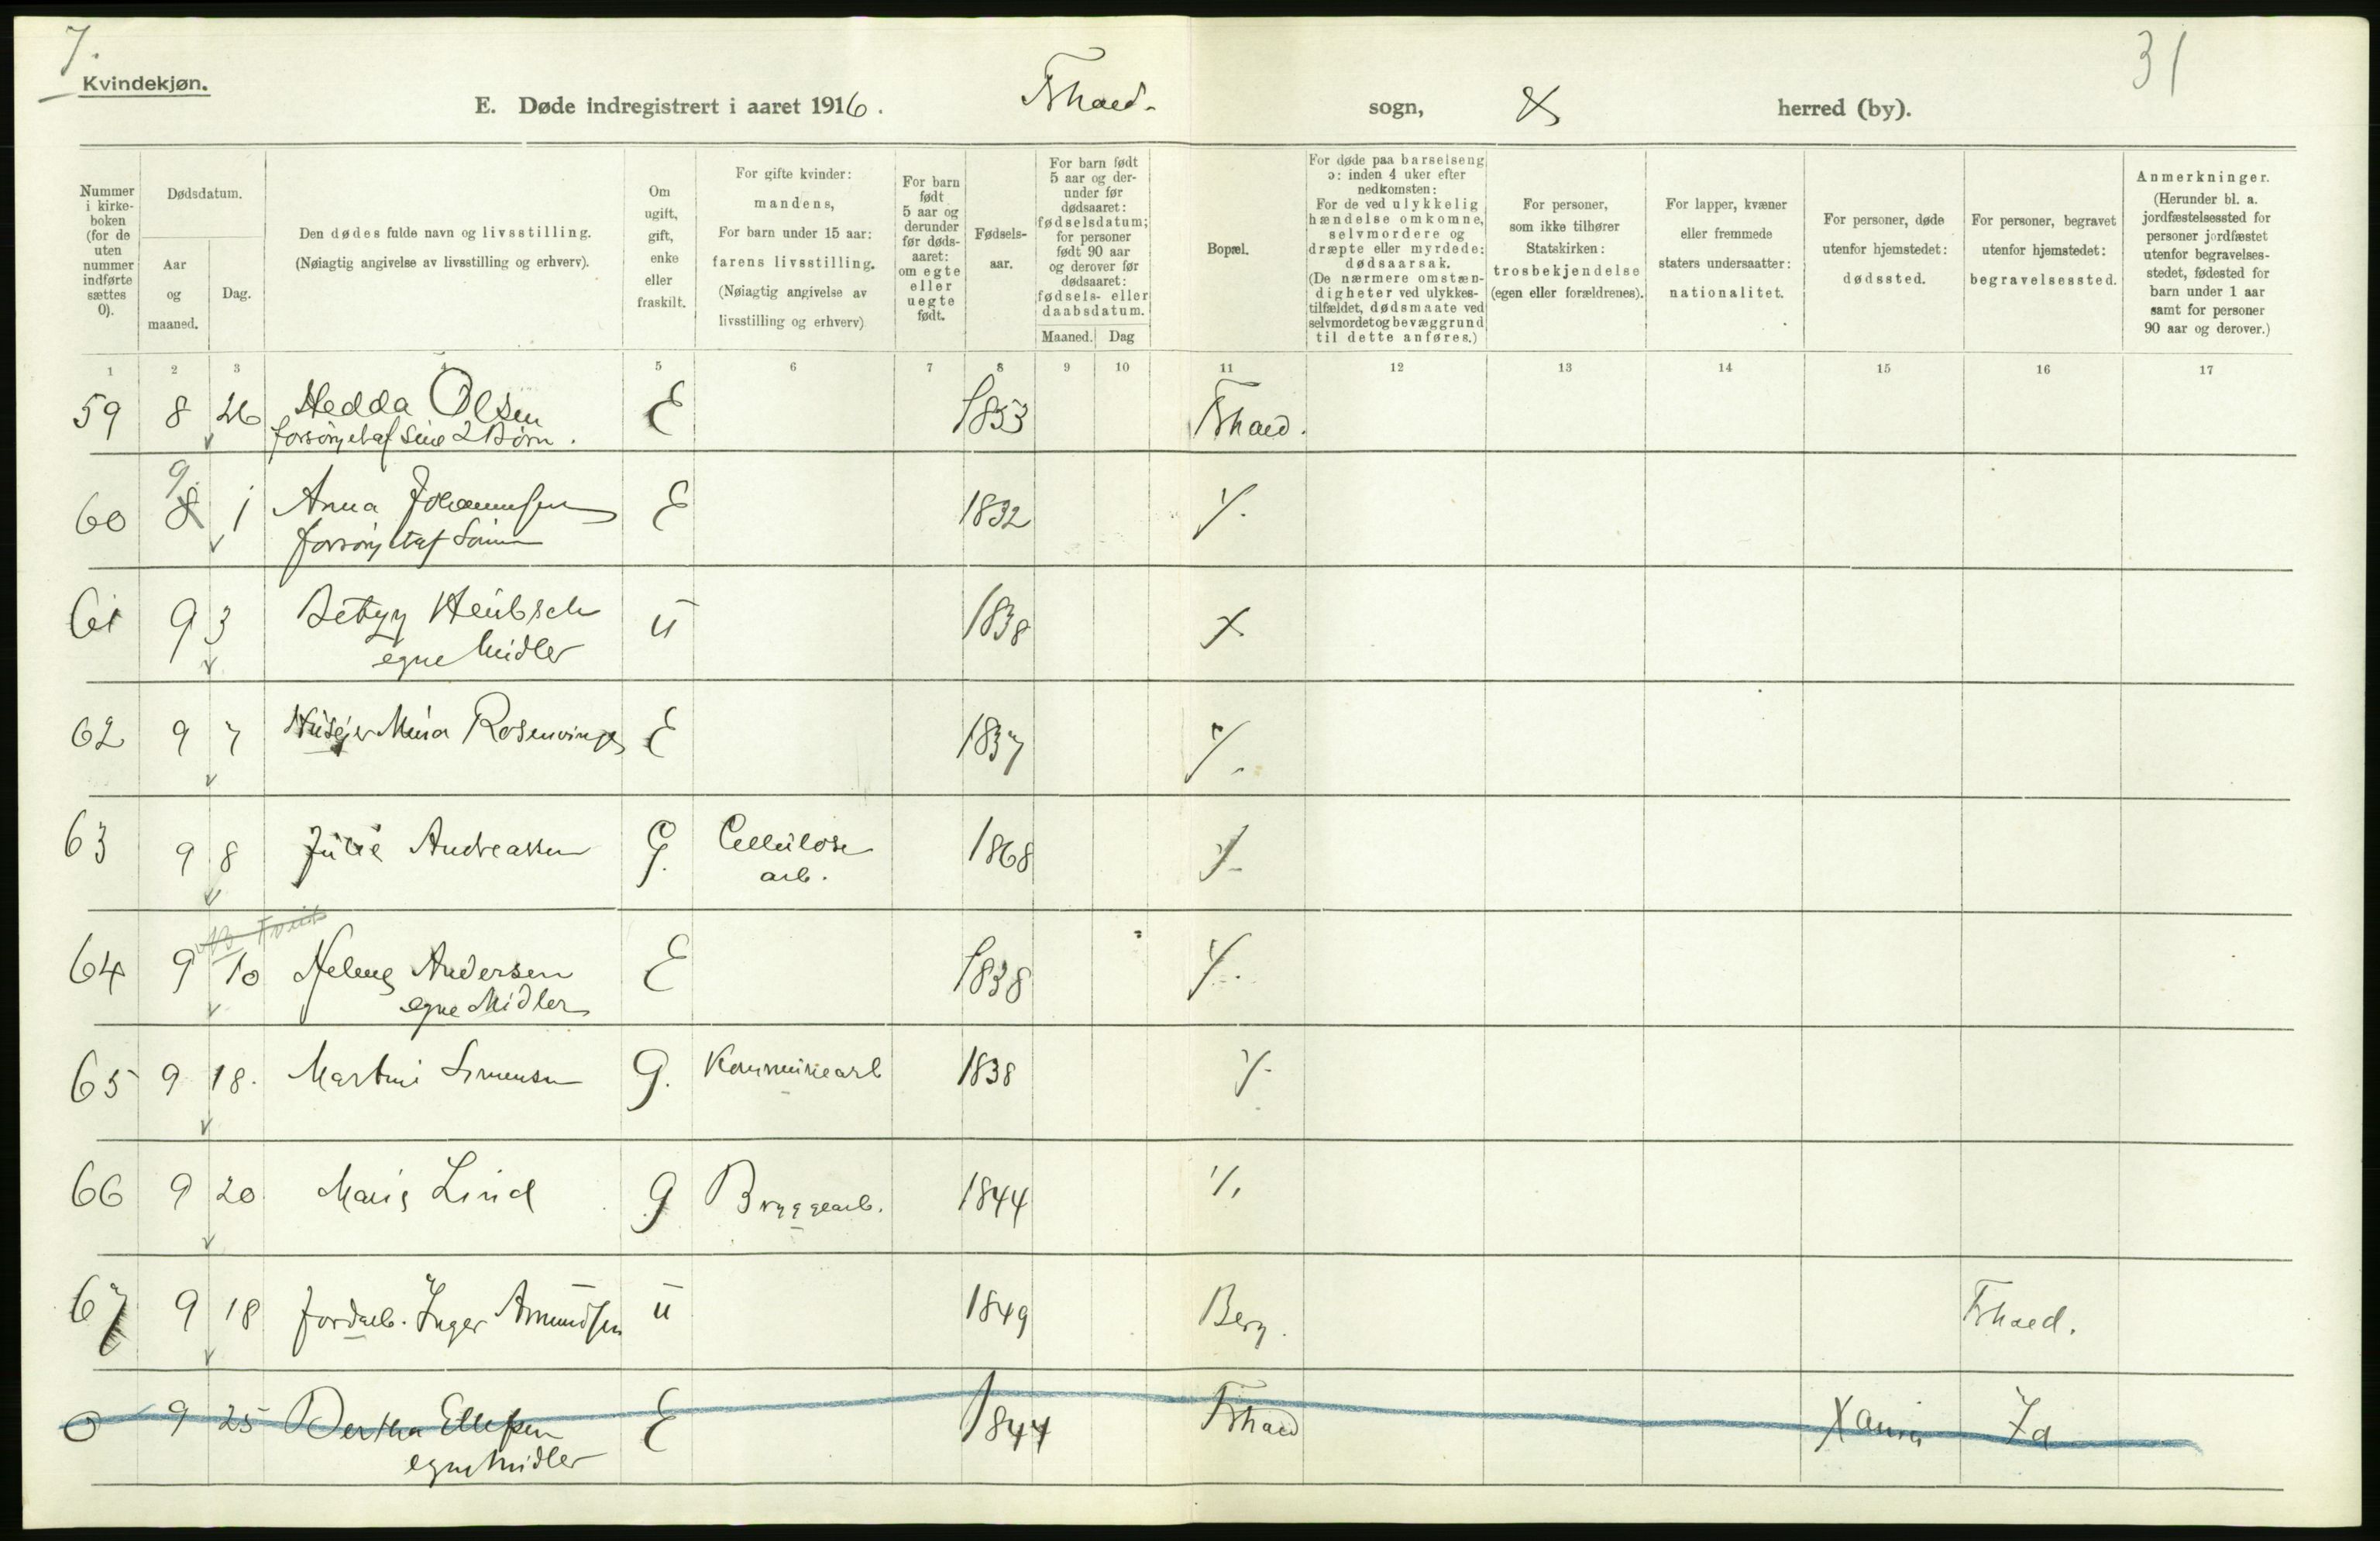 7.
31
Kvindekjøn.
E. Døde indregistrert i aaret 1916. Fshald. sogn, herred (by).
Nummer i kirke-boken (for de uten nummer indførte sættes 0).
Dødsdatum.
Aar og maaned.
Dag.
Den dødes fulde navn og livsstilling.
(Nøiagtig angivelse av livsstilling og erhverv).
Om ugift, gift, enke eller fraskilt.
For gifte kvinder:
mandens,
For barn under 15 aar:
farens livsstilling.
(Nøiagtig angivelse av
livsstilling og erhverv)
For barn født 5 aar og derunder før døds-aaret: om egte eller uegte født.
Fødsels-aar.
For barn født 5 aar og der-under før dødsaaret: fødselsdatum; for personer født 90 aar og derover før dødsaaret: fødsels- eller daabsdatum.
Maaned. Dag
Bopæl.
For døde paa barselseng ɔ: inden 4 uker efter nedkomsten:
For de ved ulykkelig hændelse omkomne, selvmordere og dræpte eller myrdede: dødsaarsak.
(De nærmere omstæn-digheter ved ulykkes-tilfældet, dødsmaate ved selvmordet og bevæggrund til dette anføres.)
For personer, som ikke tilhører Statskirken: trosbekjendelse (egen eller forældrenes).
For lapper, kvæner eller fremmede staters undersaatter: nationalitet.
For personer, døde utenfor hjemstedet: dødssted.
For personer, begravet utenfor hjemstedet: begravelsessted.
Anmerkninger.
(Herunder bl. a. jordfæstelsessted for personer jordfæstet utenfor begravelses-stedet, fødested for barn under 1 aar samt for personer 90 aar og derover.)
1 2 3 4 5 6 7 8 9 10 11 12 13 14 15 16 17
59 8 26 Hedda Olsen E 1853 Fshald.
forsørget af sine 2 Børn.
9.
60 8 1 Anna Johannesen E 1832 〃
forsørget af Sønnen
61 9 3 Betzy Heubsch u 1838 〃
egne Midler
62 9 7 Huseier Mina Rosenvinge E 1837 〃
63 9 8 Julie Andreassen G. Cellulose 1868 〃
arb.
64 9 10 Helene Andersen E 1838 〃
egne Midler
65 9 18. Martine Simensen G. Kommunearb 1838 〃
66 9 20 Marie Lind G Bryggearb. 1844 〃
67 9 18 Jordarb. Inger Amundsen u 1849 Berg. Fshald.
0 9 25 Bertha Ellefsen E 1844 Fshald Xania
egne Midler